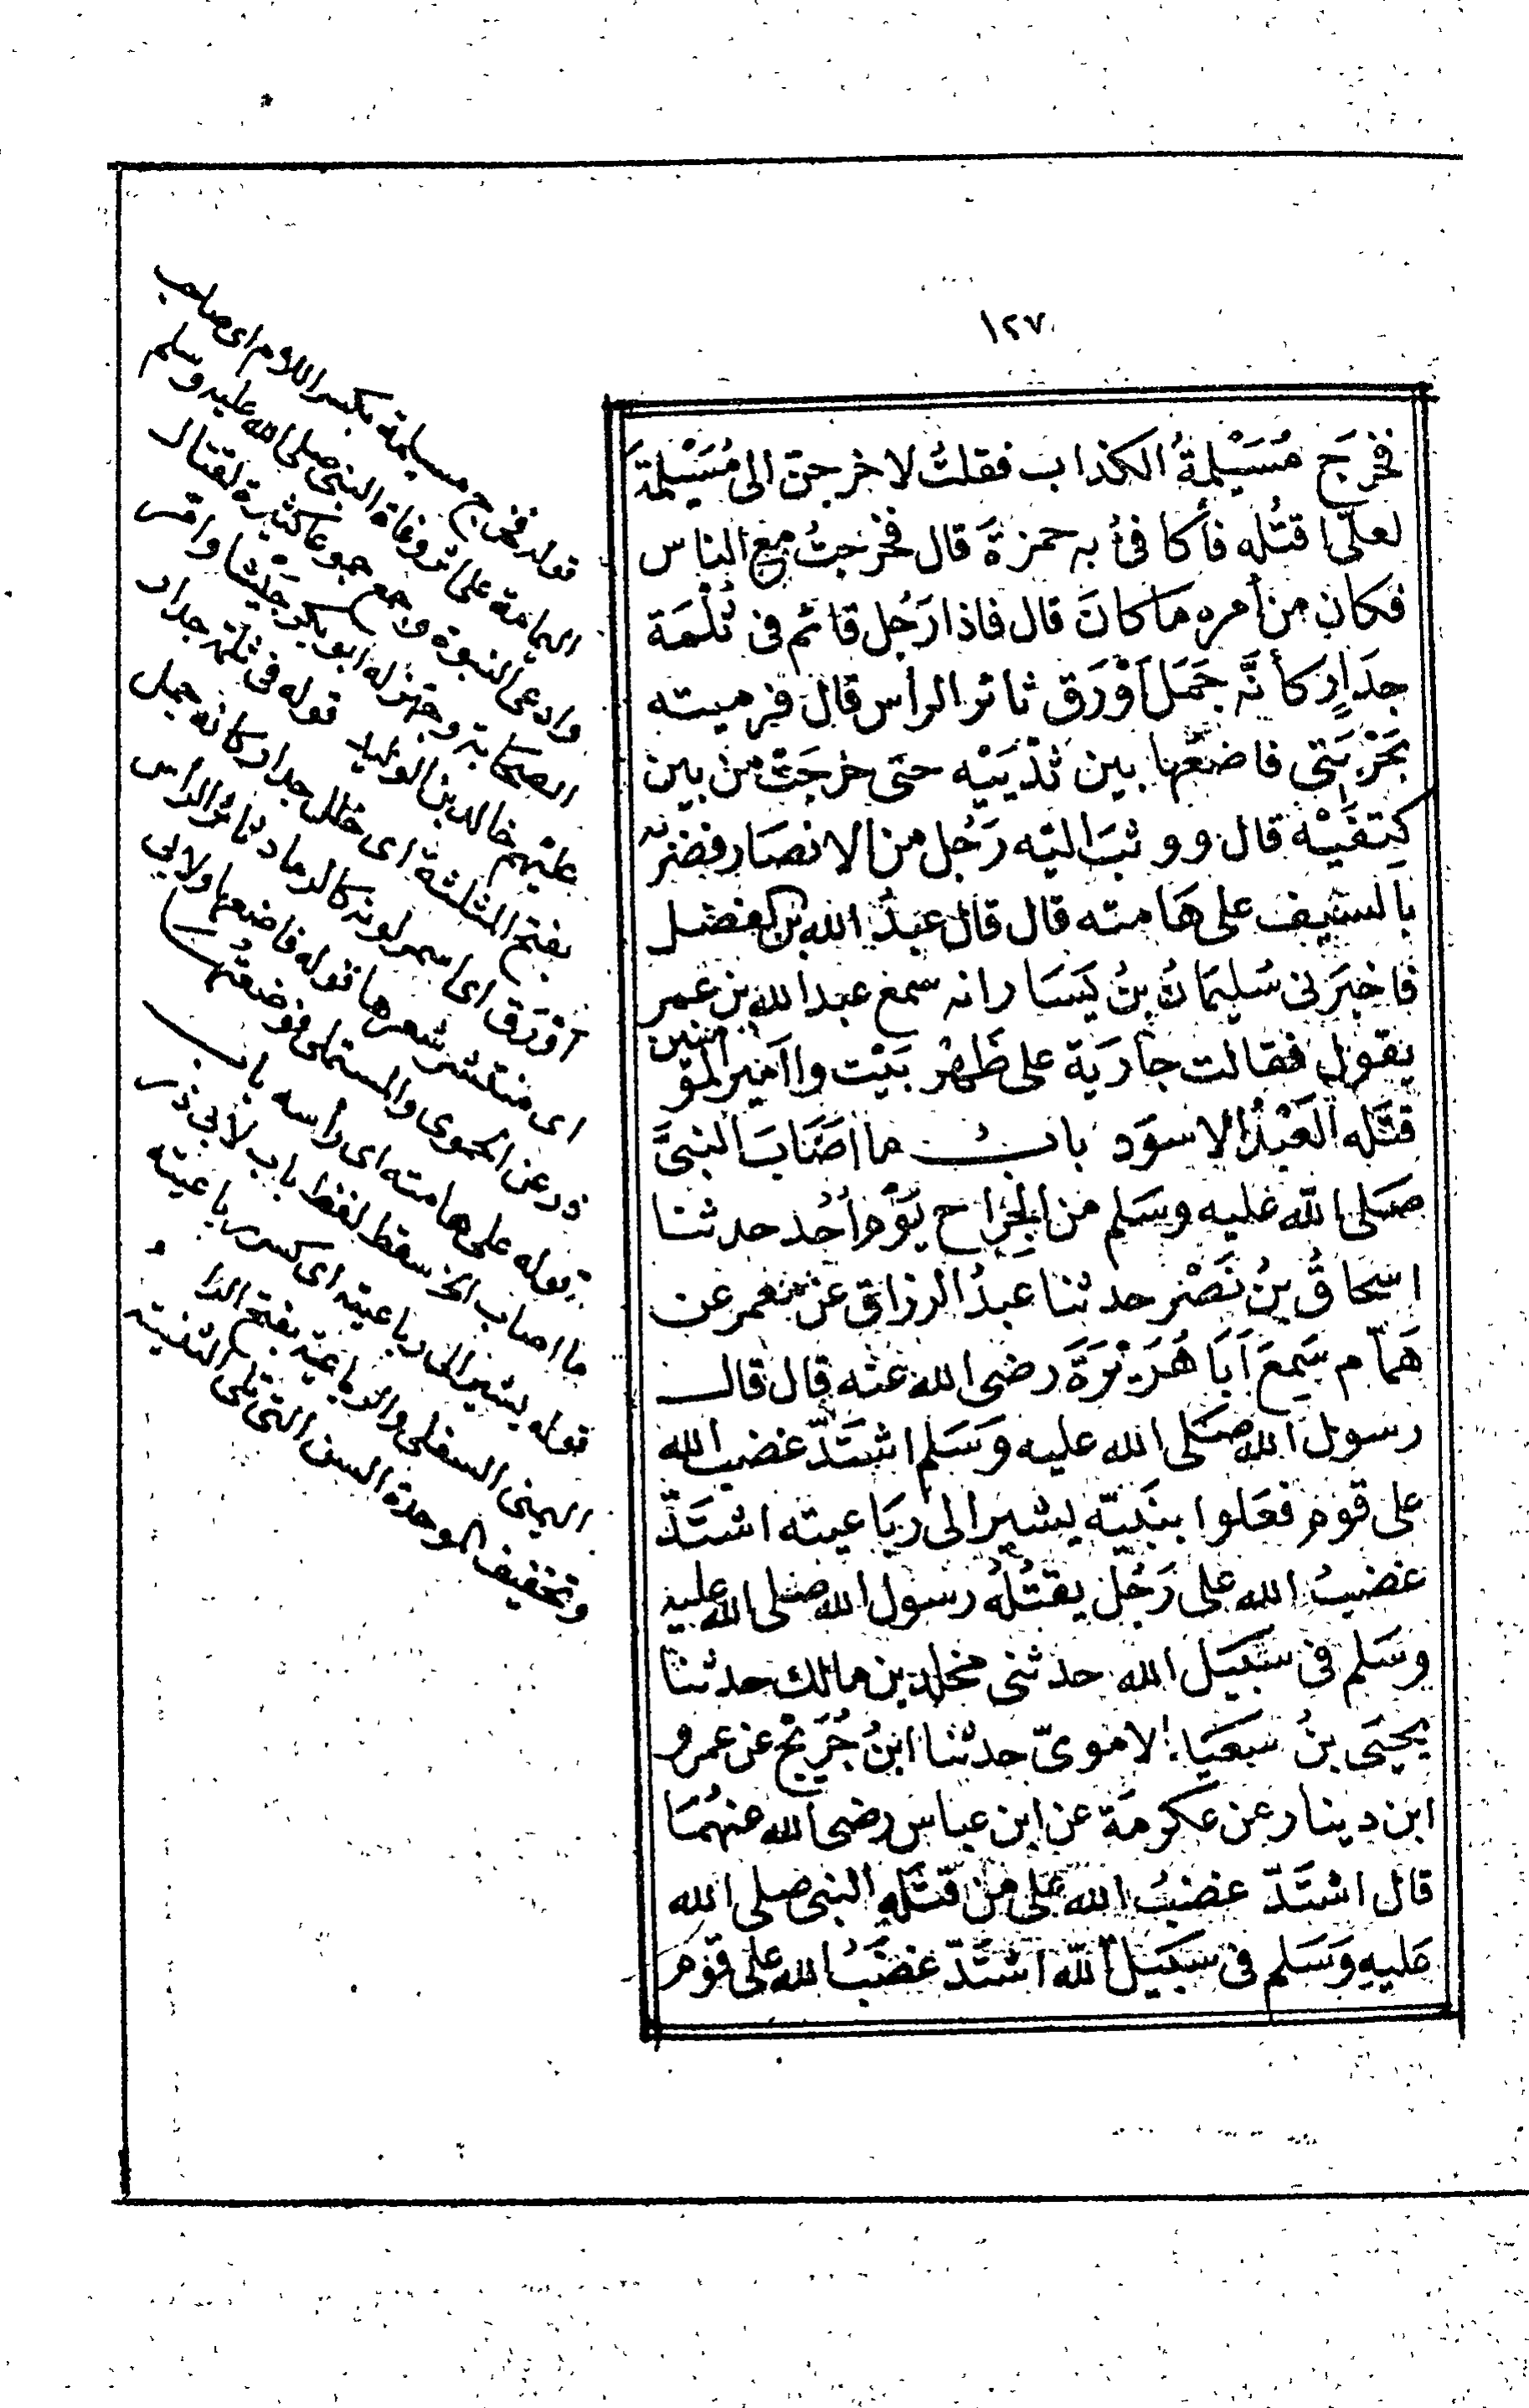 ١٢٧
فخرَجَ مُسَيْلِمةُ الكذاب فقلتُ لاخرجنّ الى مُسَيْلِمَةَ
لعلّى اقتُله فأكافئُ به حمزةَ قال فخرجتُ مع الناس
فكان من أمره ما كانَ قال فاذا رَجُل قائم فى ثُلْمَة
جِدَارٍ كأنَّه جَمَل أَوْرَق ثائر الرأس قال فرميته
بحَرْبَتى فاضَعُها بين ثَدْيَيْه حتى خرجَتْ من بين
كِتفَيْه قال ووثبَ اليْه رَجُل من الانصَار فضربَه
بالسيف على هَامته قال قال عبدُ الله بن الفضل
فاخبَرَنى سُليمَانُ بنُ يَسَار انه سمع عبد الله بن عمر
يقول فقالت جارية على ظَهْر بَيْت وا امير المؤمنين
قتَله العَبْدُ الاسوَد باب ما اصَابَ النبىَّ
صَلى الله عليه وسَلم من الجِرَاح يَوْم أُحُد حدثنا
اسحاقُ بنُ نَصْر حدثنا عبدُ الرزاق عن مَعمر عن
هَمّام سَمِعَ أبَا هُرَيْرَةَ رضى الله عنه قال قال
رسول الله صَلى الله عليه وَسَلم اشتَدَّ غضب الله
على قوم فعَلوا بنَبيّه يشير الى رَبَاعيته اشتَدَّ
غضبُ الله على رَجُل يقتُلُه رسول الله صلى الله عليه
وسَلم فى سَبيل الله حدثنى مخلد بن مالك حدثنا
يحيَى بنُ سَعيد الاموىّ حدثنا ابنُ جُرَيْج عن عمرو
ابن دينار عن عكرمَة عن ابن عباس رضى الله عنهُمَا
قال اشتَدّ غضبُ الله على من قتَله النبى صلى الله
عَليهِ وَسَلم فى سَبيل الله اشتَدّ غضَبُ الله على قوْم
قوله فخرج مسيلمة بكسر اللام اى صاحب
اليمامة على اثر وفاة النبى صلى الله عليه وسلم
وادعى النبوة وجمع جموعا كثيرة لقتال
الصحابة وجهز له ابو بكر جَيْشا وامّر
عليهم خالد بن الوليد قوله فى ثلمة جدار
بفتح المثلثة اى خلل جدار وكانه جمل
أورق اى اسمر لونه كالرماد ثائر الرأس
اى منتشر شعرها قوله فاضعها ولابى
ذر عن الحموى والمستملى فوضعتها
قوله على هامته اى رأسه باب
ما اصاب الخ سقط لفظ باب لابى ذر
قوله يشير الى رباعيته اى كسر رباعيته
اليمنى السفلى والرباعية بفتح الراء
وتخفيف الموحدة السن التى تلى الثنية